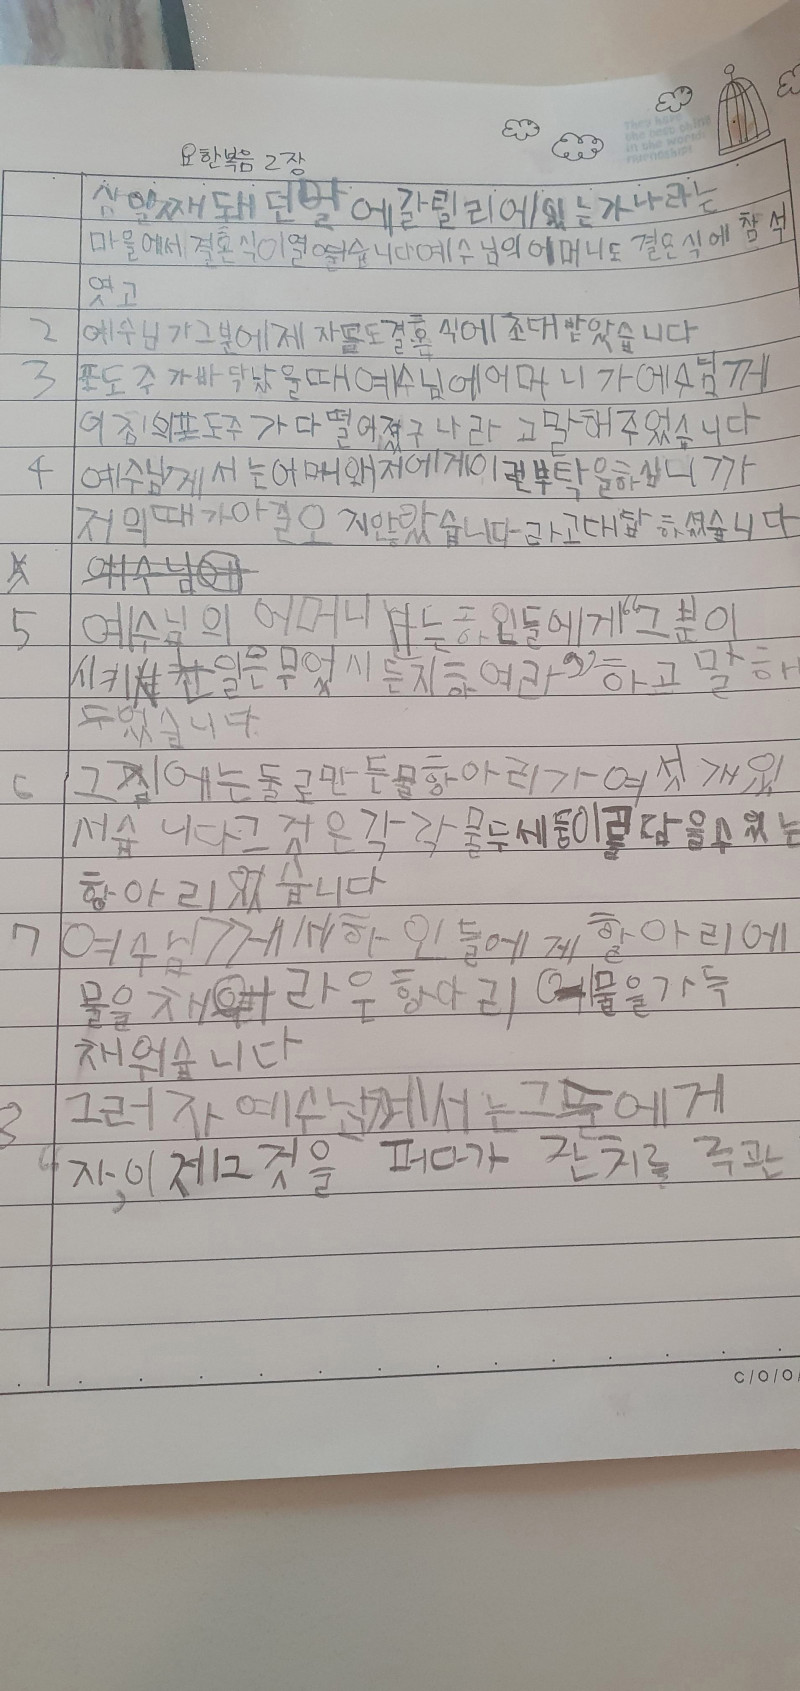 요한복음 2장
They have
the best thing
in the world:
Friendship!
삼일째 돼던 날에 갈릴리에 있는 가나라는
마을에서 결혼식이 열렸습니다 예수님의 어머니도 결혼식에 참석
엿고
2 예수님가 그분에 제자들도 결혼식에 초대 받았습니다
3 포도주가 바닥났을때 예수님에 어머니가 예수님께
이 집의 포도주가 다 떨어졌구나 라고 말해주었습니다
4 예수님께서는 어매 왜 저에게 이런 부탁을 하십니까
저의 때가 아직 오지 않았습니다 라고 대답하셨습니다
예수님
5 예수님의 어머니 하인들에게 “그분이
시키 일은 무엇시든지 하여라” 하고 말하
두었습니다
6 그 집에는 돌로 만든 물항아리가 여섯 개 있
서습니다 그 것은 각각 물 두세 동이를 담을 수 있는
항아리 있습니다
7 여수님께서 하인들에게 항아리에
물을 채 라 항아리 물을 가득
채워습니다
8 그러자 예수님께서는 그들에게
“자, 이제 그것을 퍼다가 잔치를 주관